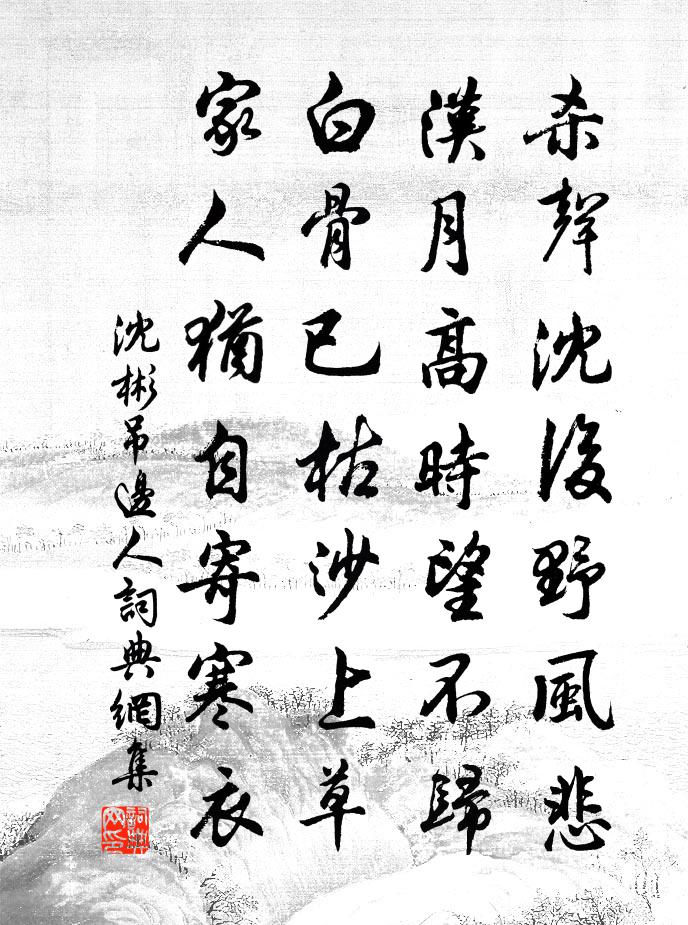 杀聲沈後野風悲
漢月高時望不歸
白骨已枯沙上草
家人猶自寄寒衣
沈彬吊邊人詞典網集